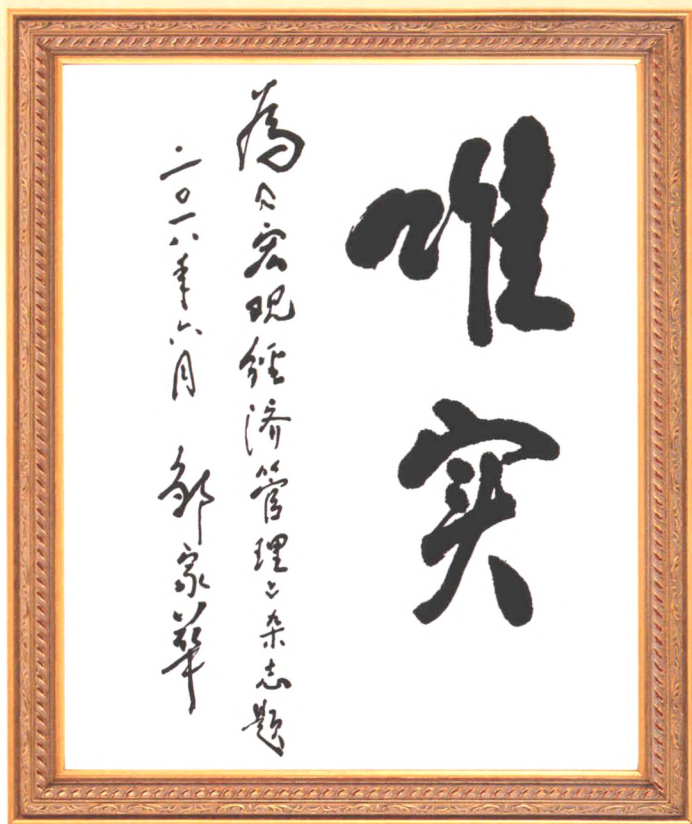 唯实
為《宏观经济管理》杂志题
二〇一八年六月 邹家華